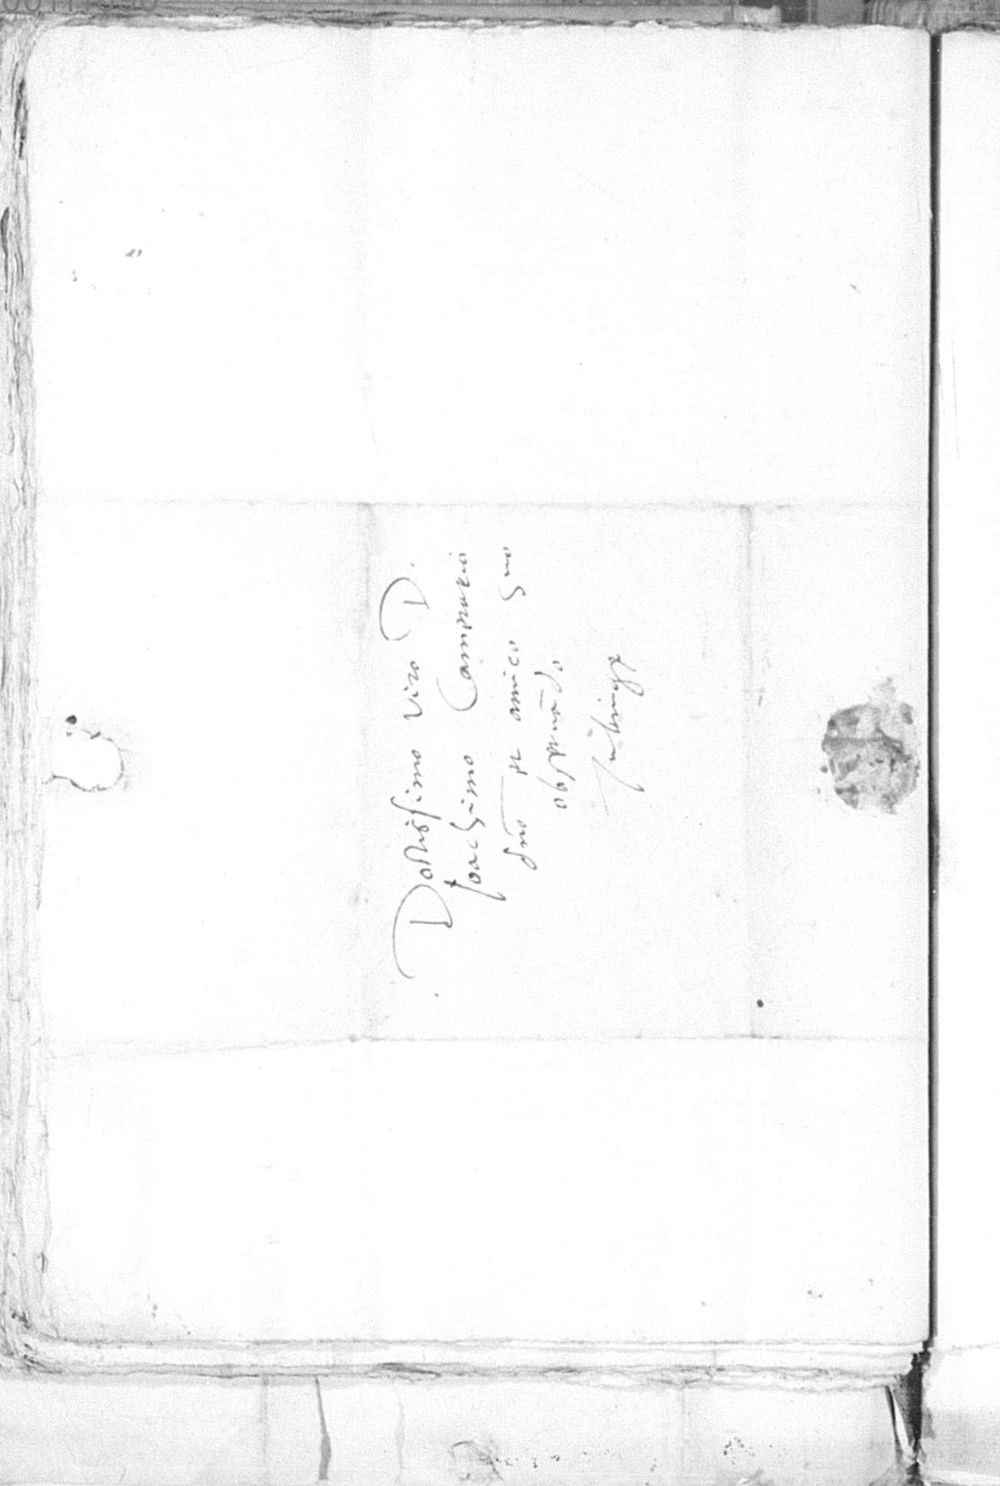 Doctissimo viro D.
Joachimo Camerario
dno et amico suo
observãdo
Tubingæ